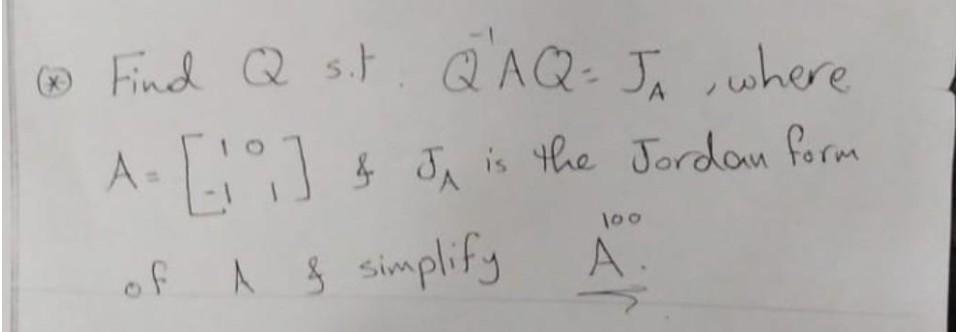 ⊛ Find Q s.t. Q⁻¹AQ = J_A , where
A = [1 0; -1 1] & J_A is the Jordan form
of A & simplify A¹⁰⁰.